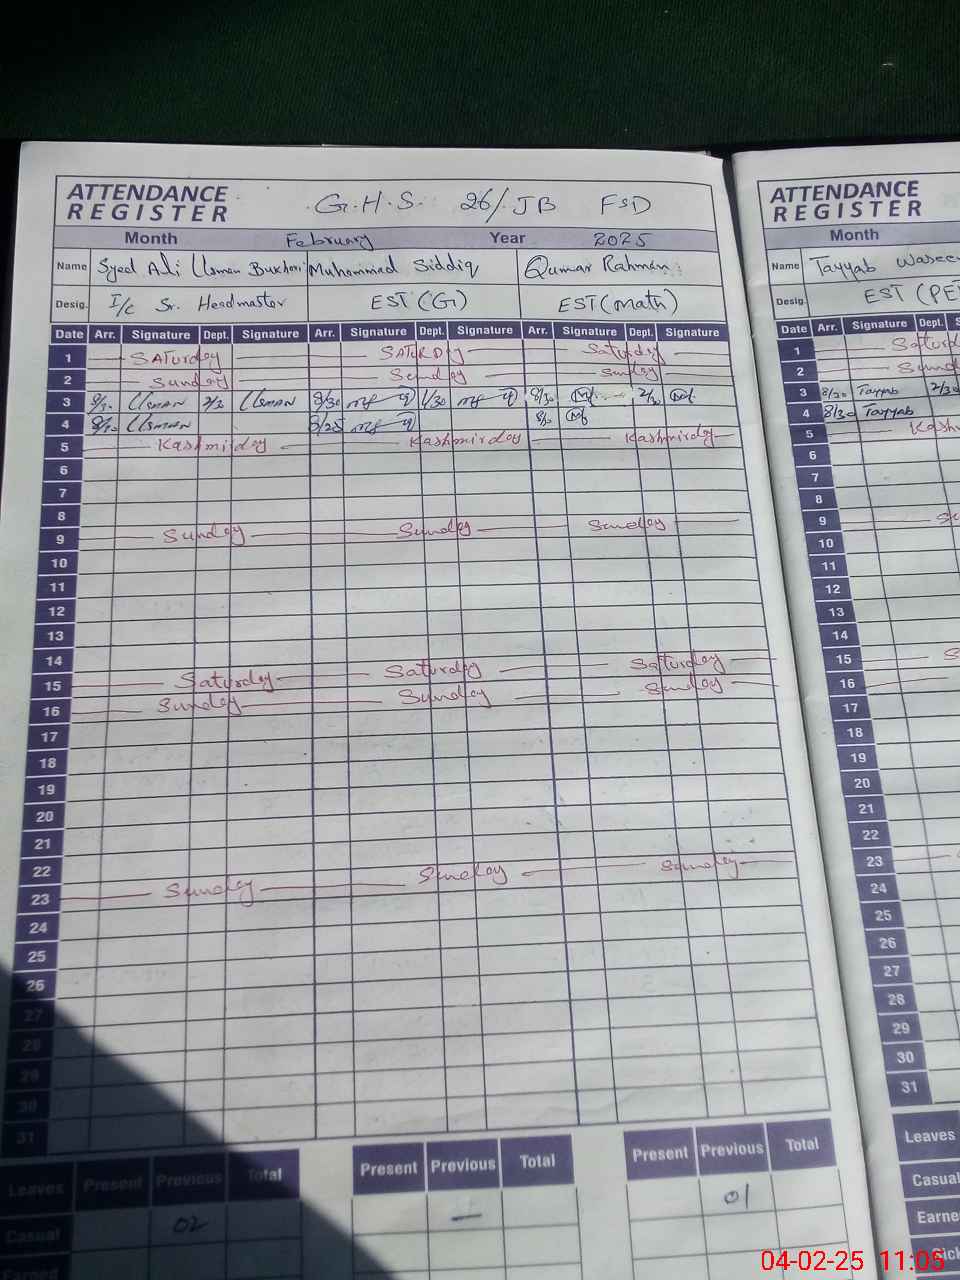 ATTENDANCE REGISTER G.H.S. 26/JB FSD
Month February Year 2025
Name Syed Ali Usman Bukhari Muhammad Siddiq Qumar Rahman
Desig. I/C Sr. Headmaster EST (G) EST (Math)
Date Arr. Signature Dept. Signature Arr. Signature Dept. Signature Arr. Signature Dept. Signature
1 Saturday SATURDay Saturday
2 Sunday Sunday Sunday
3 Usman 2/30 Usman 8/30 1/30 8/30 2/30
4 Usman 8/25
5 Kashmir day Kashmir day Kashmir day
6
7
8
9 Sunday Sunday Sunday
10
11
12
13
14
15 Saturday Saturday Saturday
16 Sunday Sunday Sunday
17
18
19
20
21
22
23 Sunday Sunday Sunday
24
25
26
27
28
29
30
31
Leaves Present Previous Total Present Previous Total Present Previous Total
Casual 02 — 01
Earned
ATTENDANCE
REGISTER
Month
Name Tayyab Waseem
Desig. EST (PE
Date Arr. Signature Dept. Sig
1 Saturd
2 Sund
3 8/30 Tayyab 2/30
4 8/30 Tayyab
5 Kash
6
7
8
9 Su
10
11
12
13
14
15 S
16
17
18
19
20
21
22
23
24
25
26
27
28
29
30
31
Leaves
Casual
Earne
Sick
04-02-25 11:05